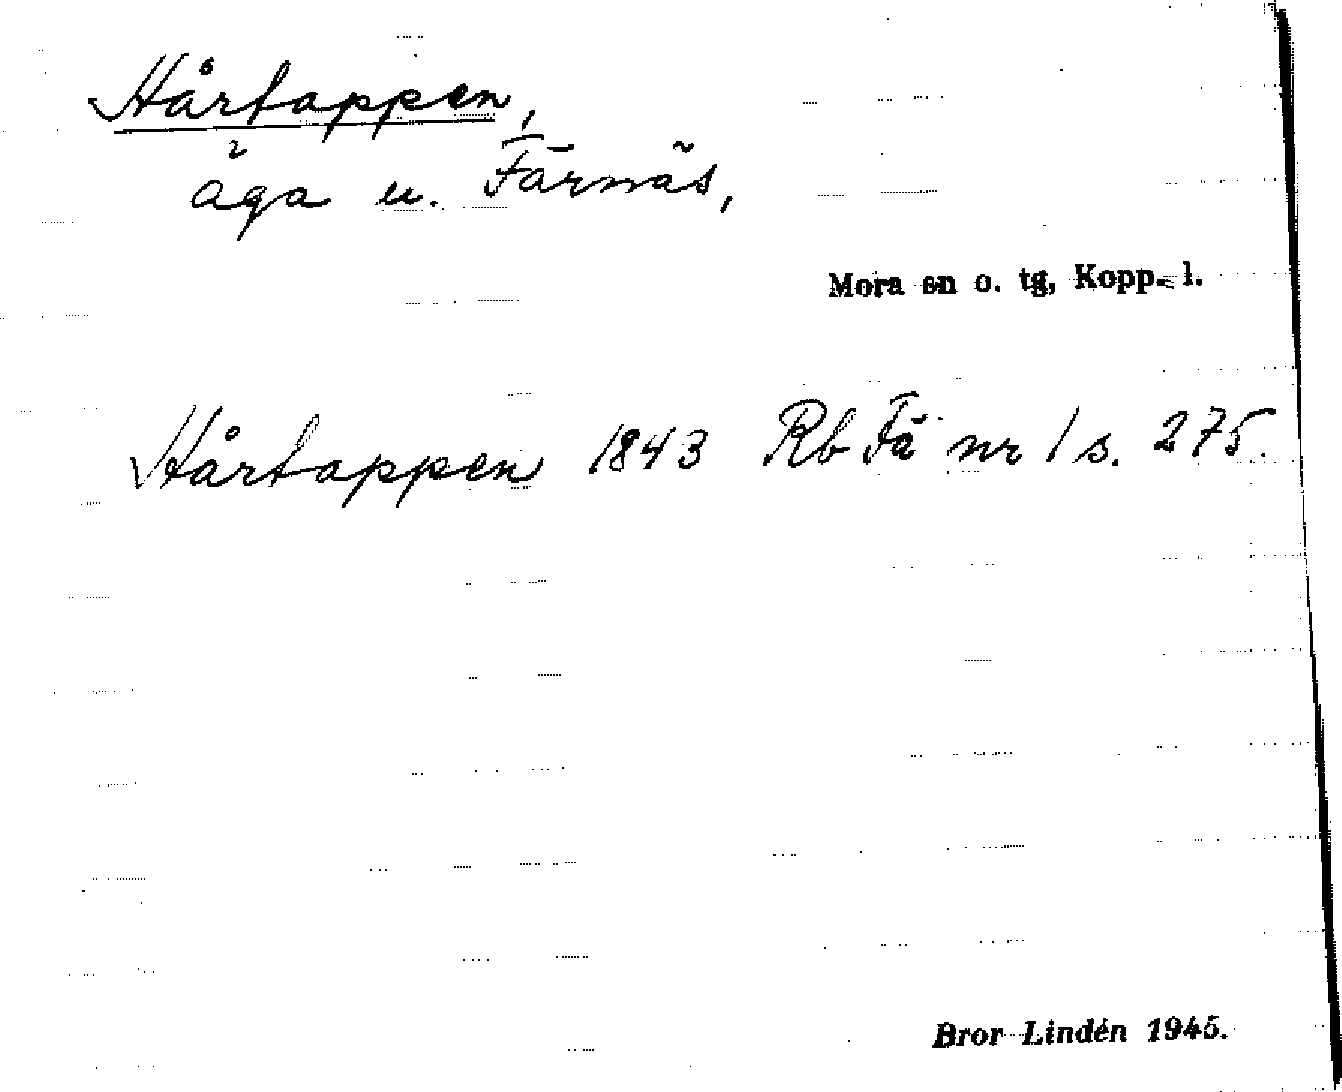 Hårtappen,
äga u. Färnäs,
Mora sn o. tg, Kopp. l.
Hårtappen 1843 Rb Fä nr 1 s. 275.
Bror Lindén 1945.